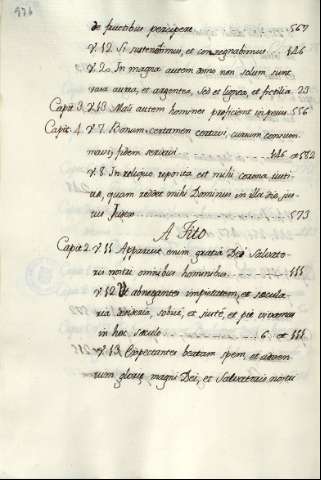 976
de fructibus percipere 567
℣. 12 Si sustinebimus, et conregnabimus 146
℣. 20. In magna autem domo non solum sunt
vasa aurea, et argentea, sed et lignea, et fictilia 23
Capit 3. ℣ 13 Mali autem homines proficient in peius 556
Capit 4. ℣ 7 Bonum certamen certavi, cursum consum-
mavi, fidem servavi 146 et 582
℣. 8 In reliquo reposita est mihi corona justi-
tiæ, quam reddet mihi Dominus in illa die, jus-
tus Judex 573
A Tito
Capit 2 ℣ 11 Apparuit enim gratia Dei Salvato-
ris nostri omnibus hominibus 111
℣ 12 Ut abnegantes impietatem, et sæcula-
ria desideria, sobriè, et justè, et piè vivamus
in hoc sæculo 6 et 111
℣ 13 Expectantes beatam spem, et adven-
tum gloriæ magni Dei, et Salvatoris nostri